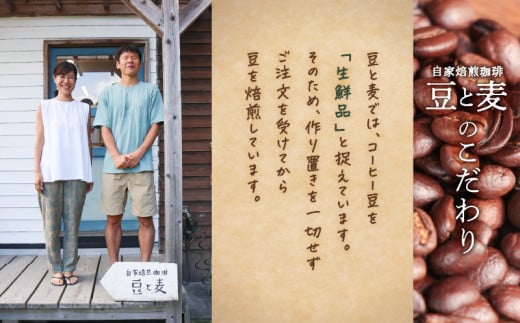 自家焙煎珈琲
豆と麦
のこだわり
豆と麦では、コーヒー豆を
「生鮮品」と捉えています。
そのため、作り置きを一切せず
ご注文を受けてから
豆を焙煎しています。
自家焙煎珈琲
豆と麦